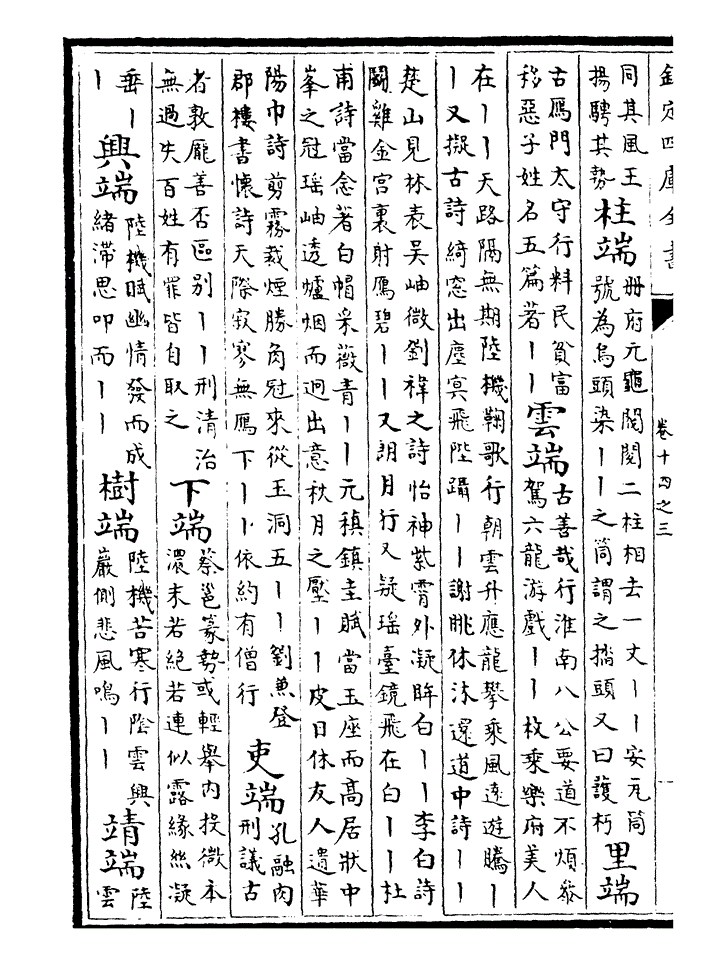 欽定四庫全書
卷十四之三
同其風王
揚騁其勢
柱端
册府元龜閥閱二柱相去一丈丨丨安瓦筒
號為烏頭染丨丨之筒謂之頭又曰護朽
里端
古鴈門太守行料民貧富
移惡子姓名五篇著丨丨
雲端
古善哉行淮南八公要道不煩參
駕六龍游戲丨丨枚乘樂府美人
在丨丨天路隔無期陸機鞠歌行朝雲升應龍攀乘風遠遊騰丨
丨又擬古詩綺窓出塵㝠飛陛躡丨丨謝眺休沐還道中詩丨丨
楚山見林表吳岫微劉禕之詩怡神紫霄外凝眸白丨丨李白詩
鬭雞金宮裏射鴈碧丨丨又朗月行又疑瑶臺鏡飛在白丨丨杜
甫詩當念著白帽采薇青丨丨元稹鎮圭賦當玉座而高居狀中
峯之冠瑶岫透爐烟而迥出意秋月之壓丨丨皮日休友人遺華
陽巾詩剪霧裁煙勝角冠來從玉洞五丨丨劉兼登
郡樓書懷詩天際寂寥無鴈下丨丨依約有僧行
吏端
孔融肉
刑議古
者敦龐善否區别丨丨刑清治
無過失百姓有罪皆自取之
下端
蔡邕篆勢或輕舉内投微本
濃末若絶若連似露緣絲凝
垂丨
丨
興端
陸機賦幽情發而成
緒滯思叩而丨丨
樹端
陸機苦寒行隂雲興
巖側悲風鳴丨丨
靖端
陸
雲